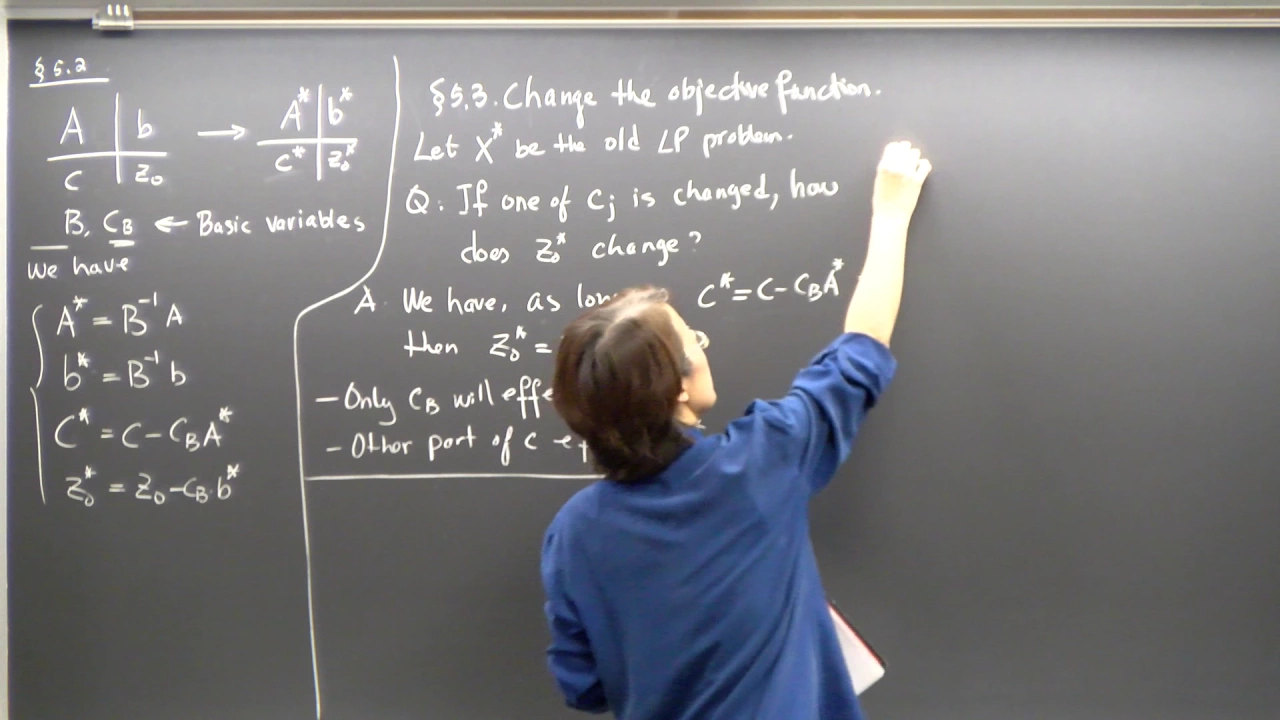 § 5.2
A | b → A* | b*
c | z₀ c* | z₀*
B, C_B ← Basic variables
We have
A* = B⁻¹ A
b* = B⁻¹ b
C* = C - C_B A*
z₀* = z₀ - C_B · b*
§5.3. Change the objective function.
Let X* be the old LP problem.
Q: If one of Cj is changed, how
does z₀* change?
A. We have, as C* = C - C_B A*
then z₀* =
- Only C_B will
- Other part of c